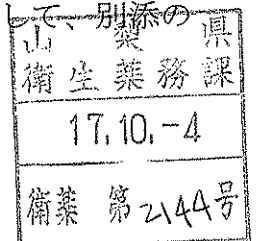 して、別添の
山梨県
衛生薬務課
17.10.-4
衛薬 第2144号